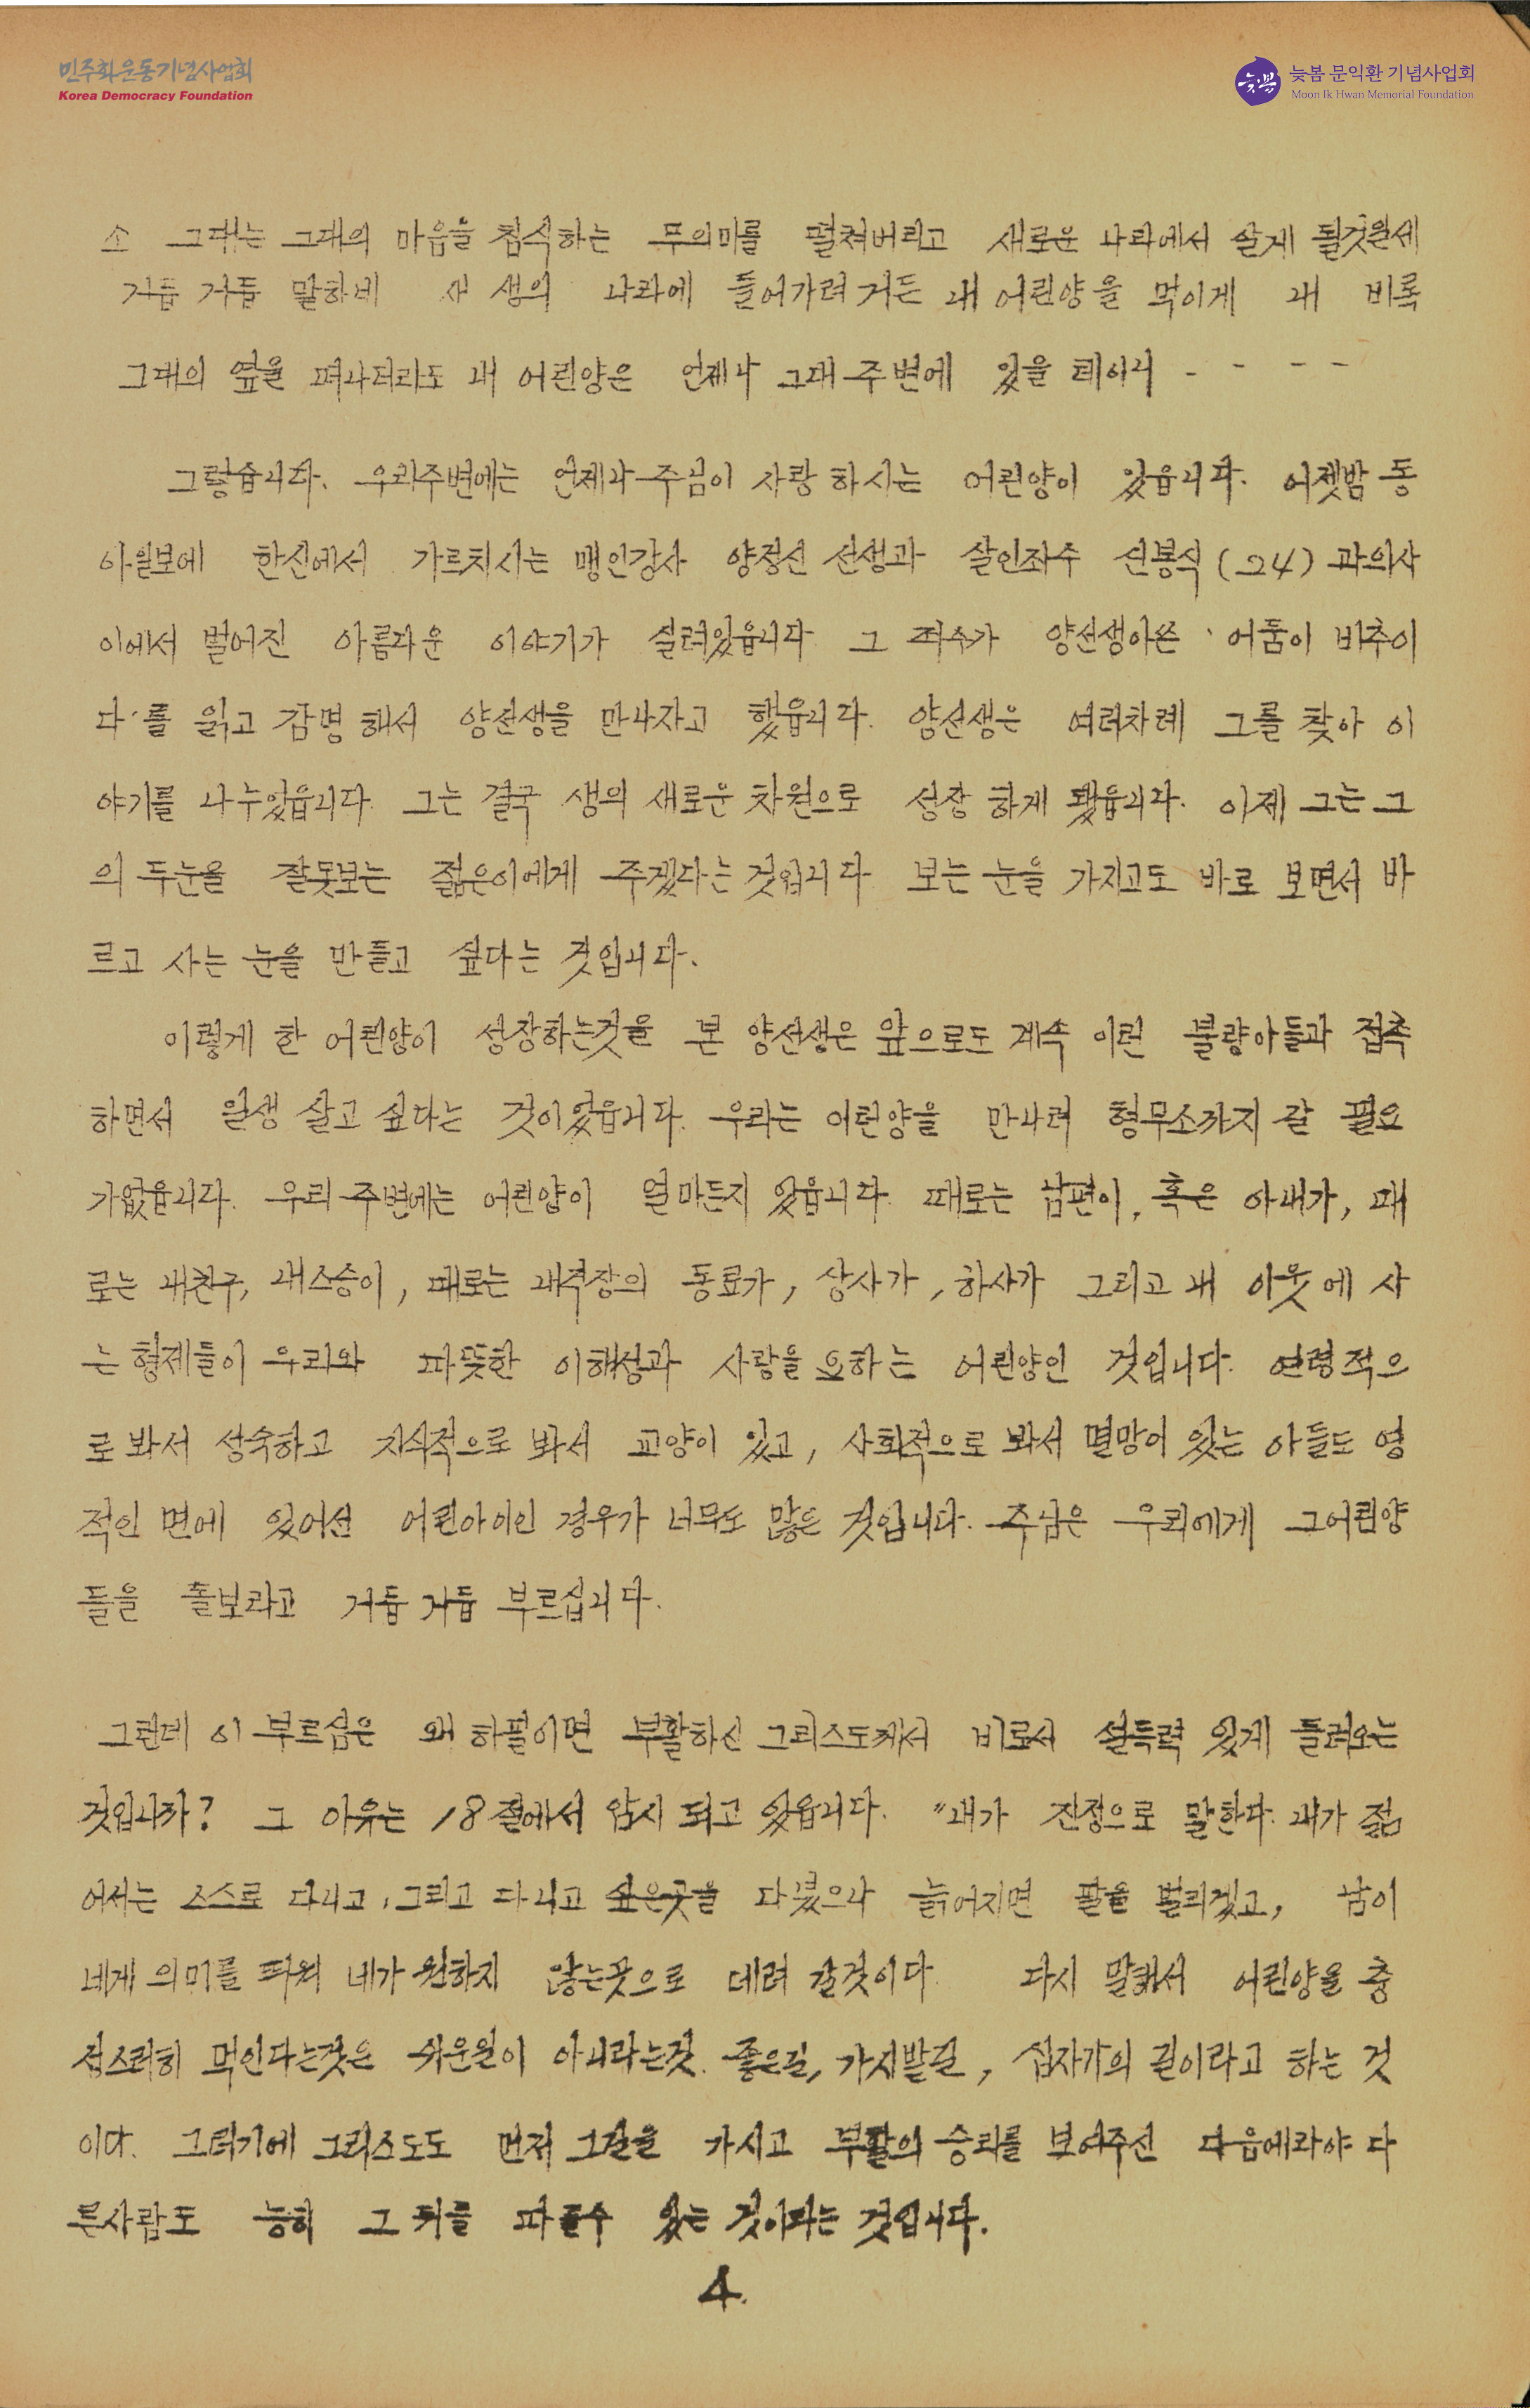 민주화운동기념사업회
Korea Democracy Foundation
늦봄
늦봄 문익환 기념사업회
Moon Ik Hwan Memorial Foundation
소 그대는 그대의 마음을 침식하는 무의미를 떨쳐버리고 새로운 나라에서 살게 될것일세
거듭 거듭 말하네 새 생의 나라에 들어가려거든 내 어린양을 먹이게 내 비록
그대의 옆을 떠나더라도 내 어린양은 언제나 그대 주변에 있을 테이니 - - - -
그렇습니다. 우리주변에는 언제나 주님이 사랑 하시는 어린양이 있읍니다. 어젯밤 동
아일보에 한신에서 가르치시는 맹인강사 양정신 선생과 살인죄수 신봉식 (24) 과의사
이에서 벌어진 아름다운 이야기가 실려있읍니다 그 죄수가 양선생이쓴 '어둠이 비추이
다'를 읽고 감명 해서 양선생을 만나자고 했읍니다. 양선생은 여러차례 그를 찾아 이
야기를 나누었읍니다. 그는 결국 생의 새로운 차원으로 성장 하게 됐읍니다. 이제 그는 그
의 두눈을 잘못보는 젊은이에게 주겠다는 것입니다 보는 눈을 가지고도 바로 보면서 바
르고 사는 눈을 만들고 싶다는 것입니다.
이렇게 한 어린양이 성장하는것을 본 양선생은 앞으로도 계속 이런 불량아들과 접촉
하면서 일생 살고 싶다는 것이었읍니다. 우리는 어린양을 만나려 형무소까지 갈 필요
가없읍니다. 우리 주변에는 어린양이 얼마든지 있읍니다. 때로는 남편이, 혹은 아내가, 때
로는 내친구, 내스승이, 때로는 내직장의 동료가, 상사가, 하사가 그리고 내 이웃에 사
는 형제들이 우리와 따뜻한 이해성과 사랑을 요하는 어린양인 것입니다. 연령적으
로 봐서 성숙하고 지식적으로 봐서 교양이 있고, 사회적으로 봐서 명망이 있는 아들도 영
적인 면에 있어선 어린아이인 경우가 너무도 많은 것입니다. 주님은 우리에게 그어린양
들을 돌보라고 거듭 거듭 부르십니다.
그런데 이 부르심은 왜 하필이면 부활하신 그리스도께서 비로서 설득력 있게 들려오는
것입니까? 그 이유는 18절에서 암시 되고 있읍니다. "내가 진정으로 말한다. 네가 젊
어서는 스스로 다니고, 그리고 다니고 싶은곳을 다녔으나 늙어지면 팔을 벌리겠고, 남이
네게 의미를 띄워 네가 원하지 않는곳으로 데려 갈것이다 다시 말해서 어린양을 충
성스러히 먹인다는것은 쉬운일이 아니라는것. 좋은길, 가시밭길, 십자가의 길이라고 하는 것
이다. 그러기에 그리스도도 먼저 그길을 가시고 부활의 승리를 보여주신 다음에라야 다
른사람도 능히 그 뒤를 따를수 있는 것이라는 것입니다.
4.